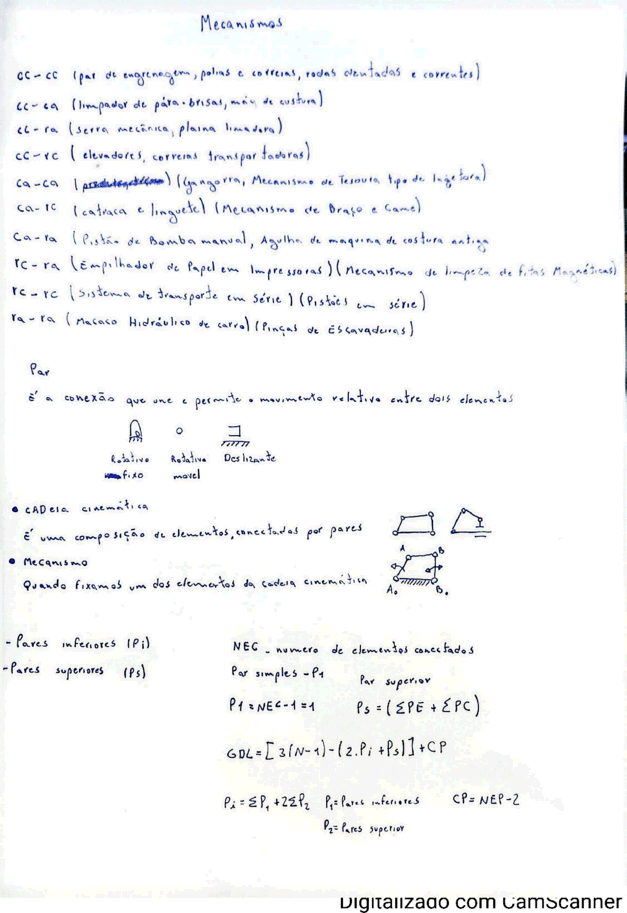 Mecanismos
CC-CC (par de engrenagem, polias e correias, rodas dentadas e correntes)
CC-ca (limpador de pára-brisas, máq de custura)
CC-ra (serra mecânica, plaina limadora)
CC-rc (elevadores, correias transportadoras)
ca-ca (Gangorra, Mecanismo de Tesoura tipo de Injetora)
ca-rc (catraca e linguete) (Mecanismo de Braço e Came)
ca-ra (Pistão de Bomba manual, Agulha de maquina de costura antiga
rc-ra (Empilhador de Papel em Impressoras) (Mecanismo de limpeza de fitas Magnéticas)
rc-rc (Sistema de transporte em Série) (Pistões em série)
ra-ra (Macaco Hidráulico de carro) (Pinças de Escavadeiras)
Par
É a conexão que une e permite o movimento relativo entre dois elementos
Rotativo Rotativo Deslizante
fixo movel
• CADeia cinemática
É uma composição de elementos, conectados por pares
• Mecanismo
Quando fixamos um dos elementos da cadeia cinemática
A B
A₀ B₀
- Pares inferiores (Pi)
- Pares superiores (Ps)
NEC - numero de elementos conectados
Par simples - P1 Par superior
P1 = NEC-1 = 1 Ps = (ΣPE + ΣPC)
GDL = [3(N-1)-(2.Pi+Ps)]+CP
Pi = ΣP₁ + 2ΣP₂ P₁ = Pares inferiores CP = NEP-2
P₂ = Pares superior
Digitalizado com CamScanner